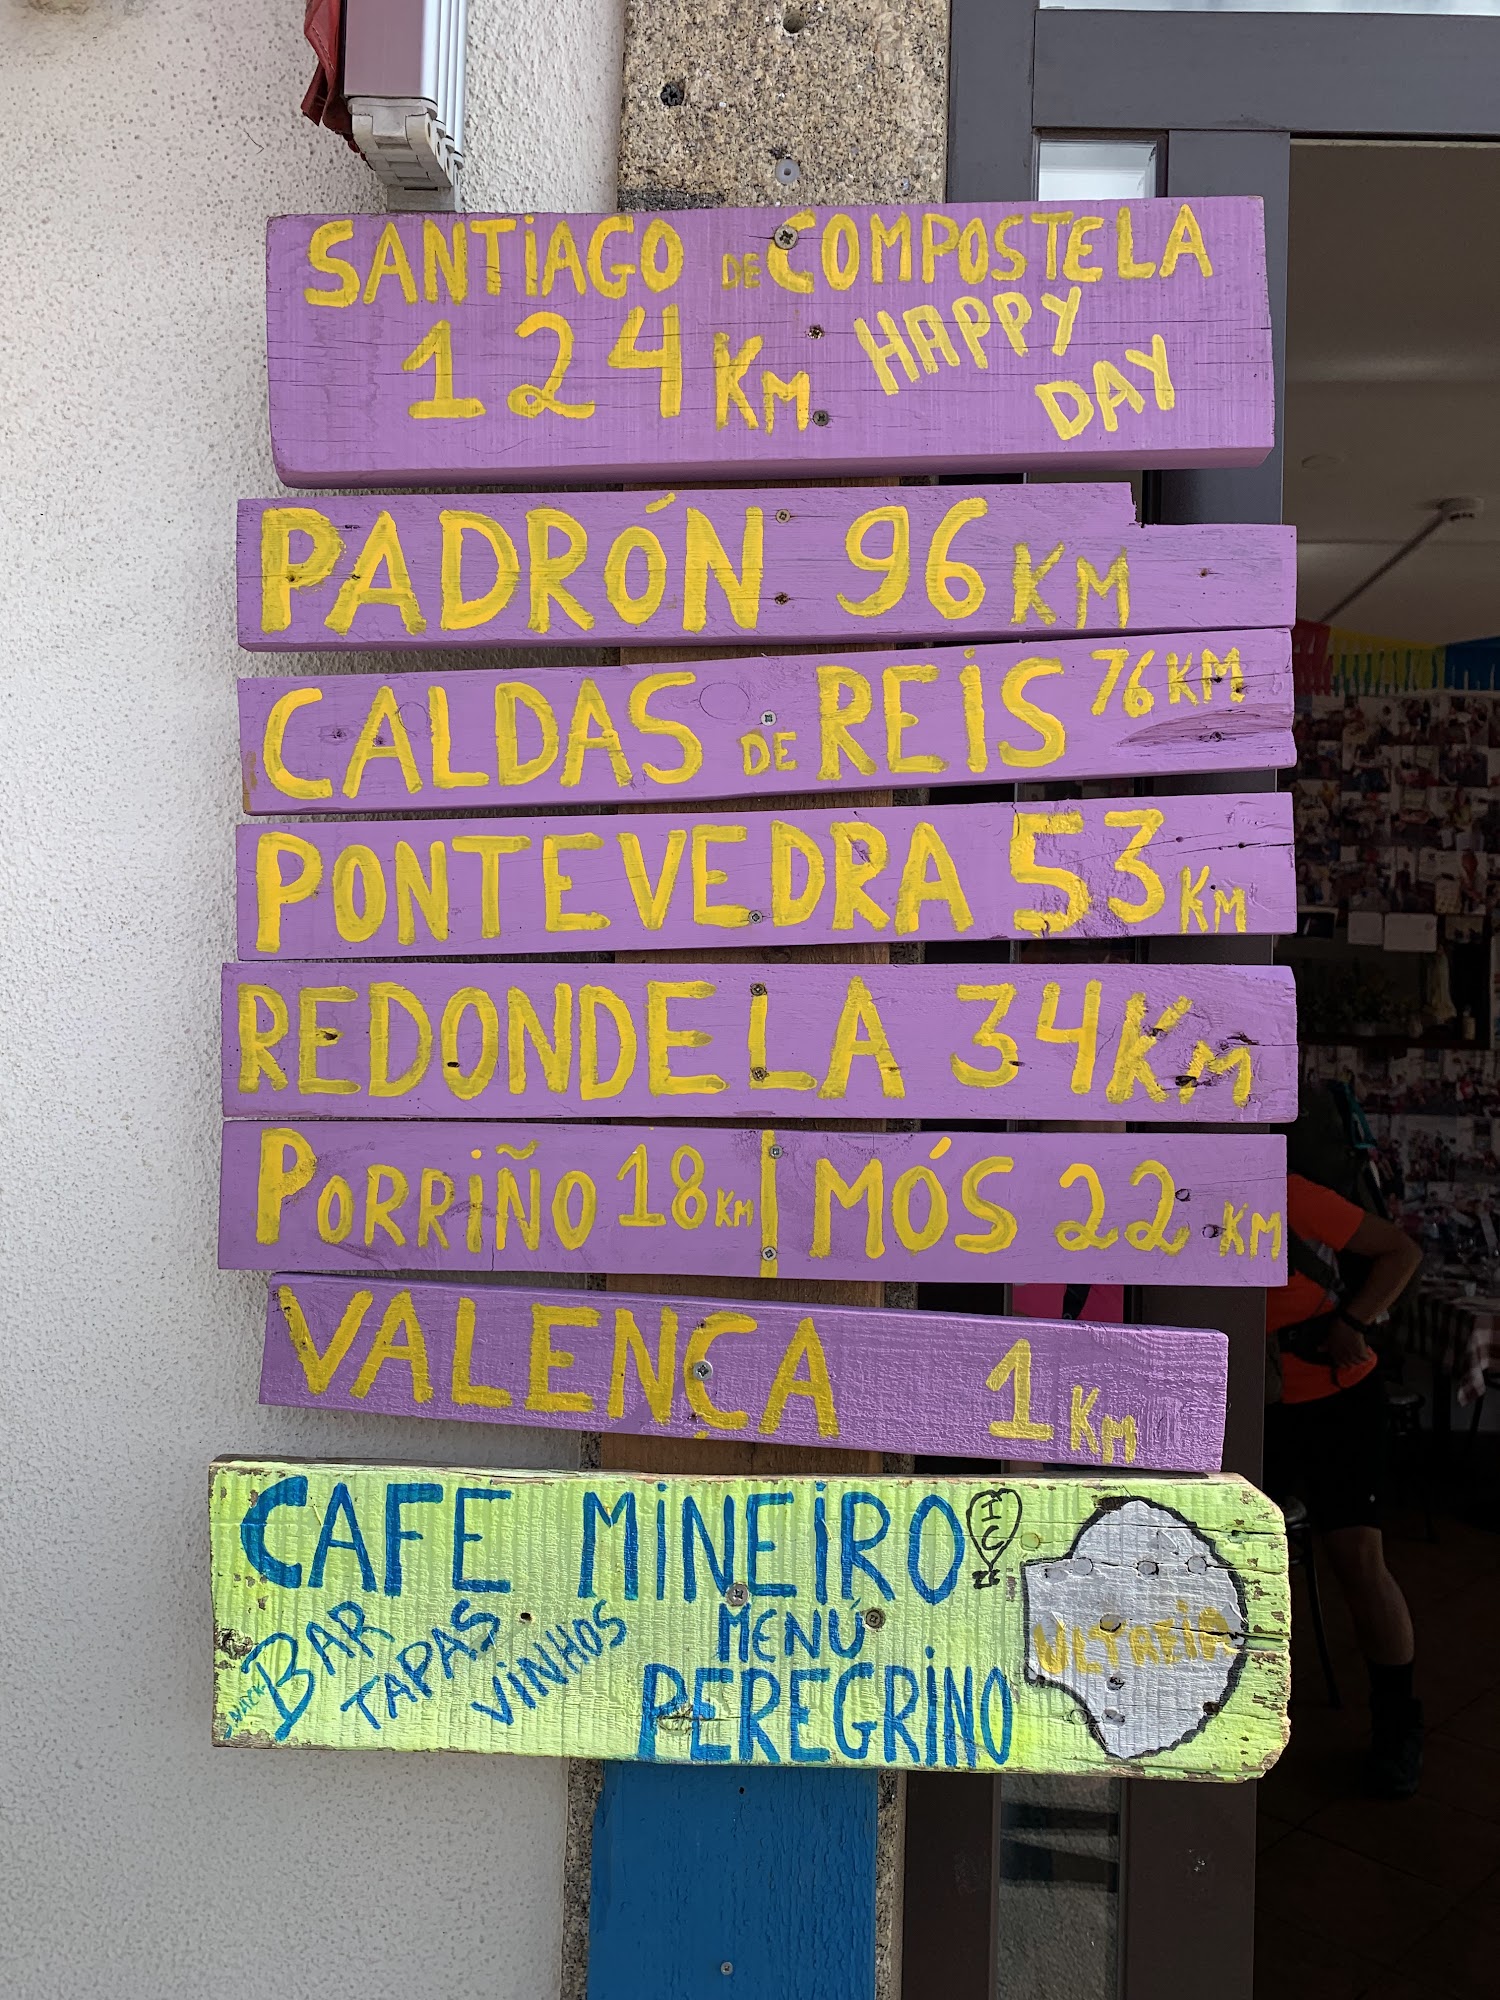 SANTiAGO DE COMPOSTELA
124 KM HAPPY
DAY
PADRÓN 96 KM
CALDAS DE REiS 76KM
PONTEVEDRA 53 KM
REDONDELA 34KM
PORRiÑO 18KM | MÓS 22 KM
VALENÇA 1 KM
CAFE MiNEiRO
SNACK BAR TAPAS ViNHOS MENÚ
PEREGRiNO
ULTREiA